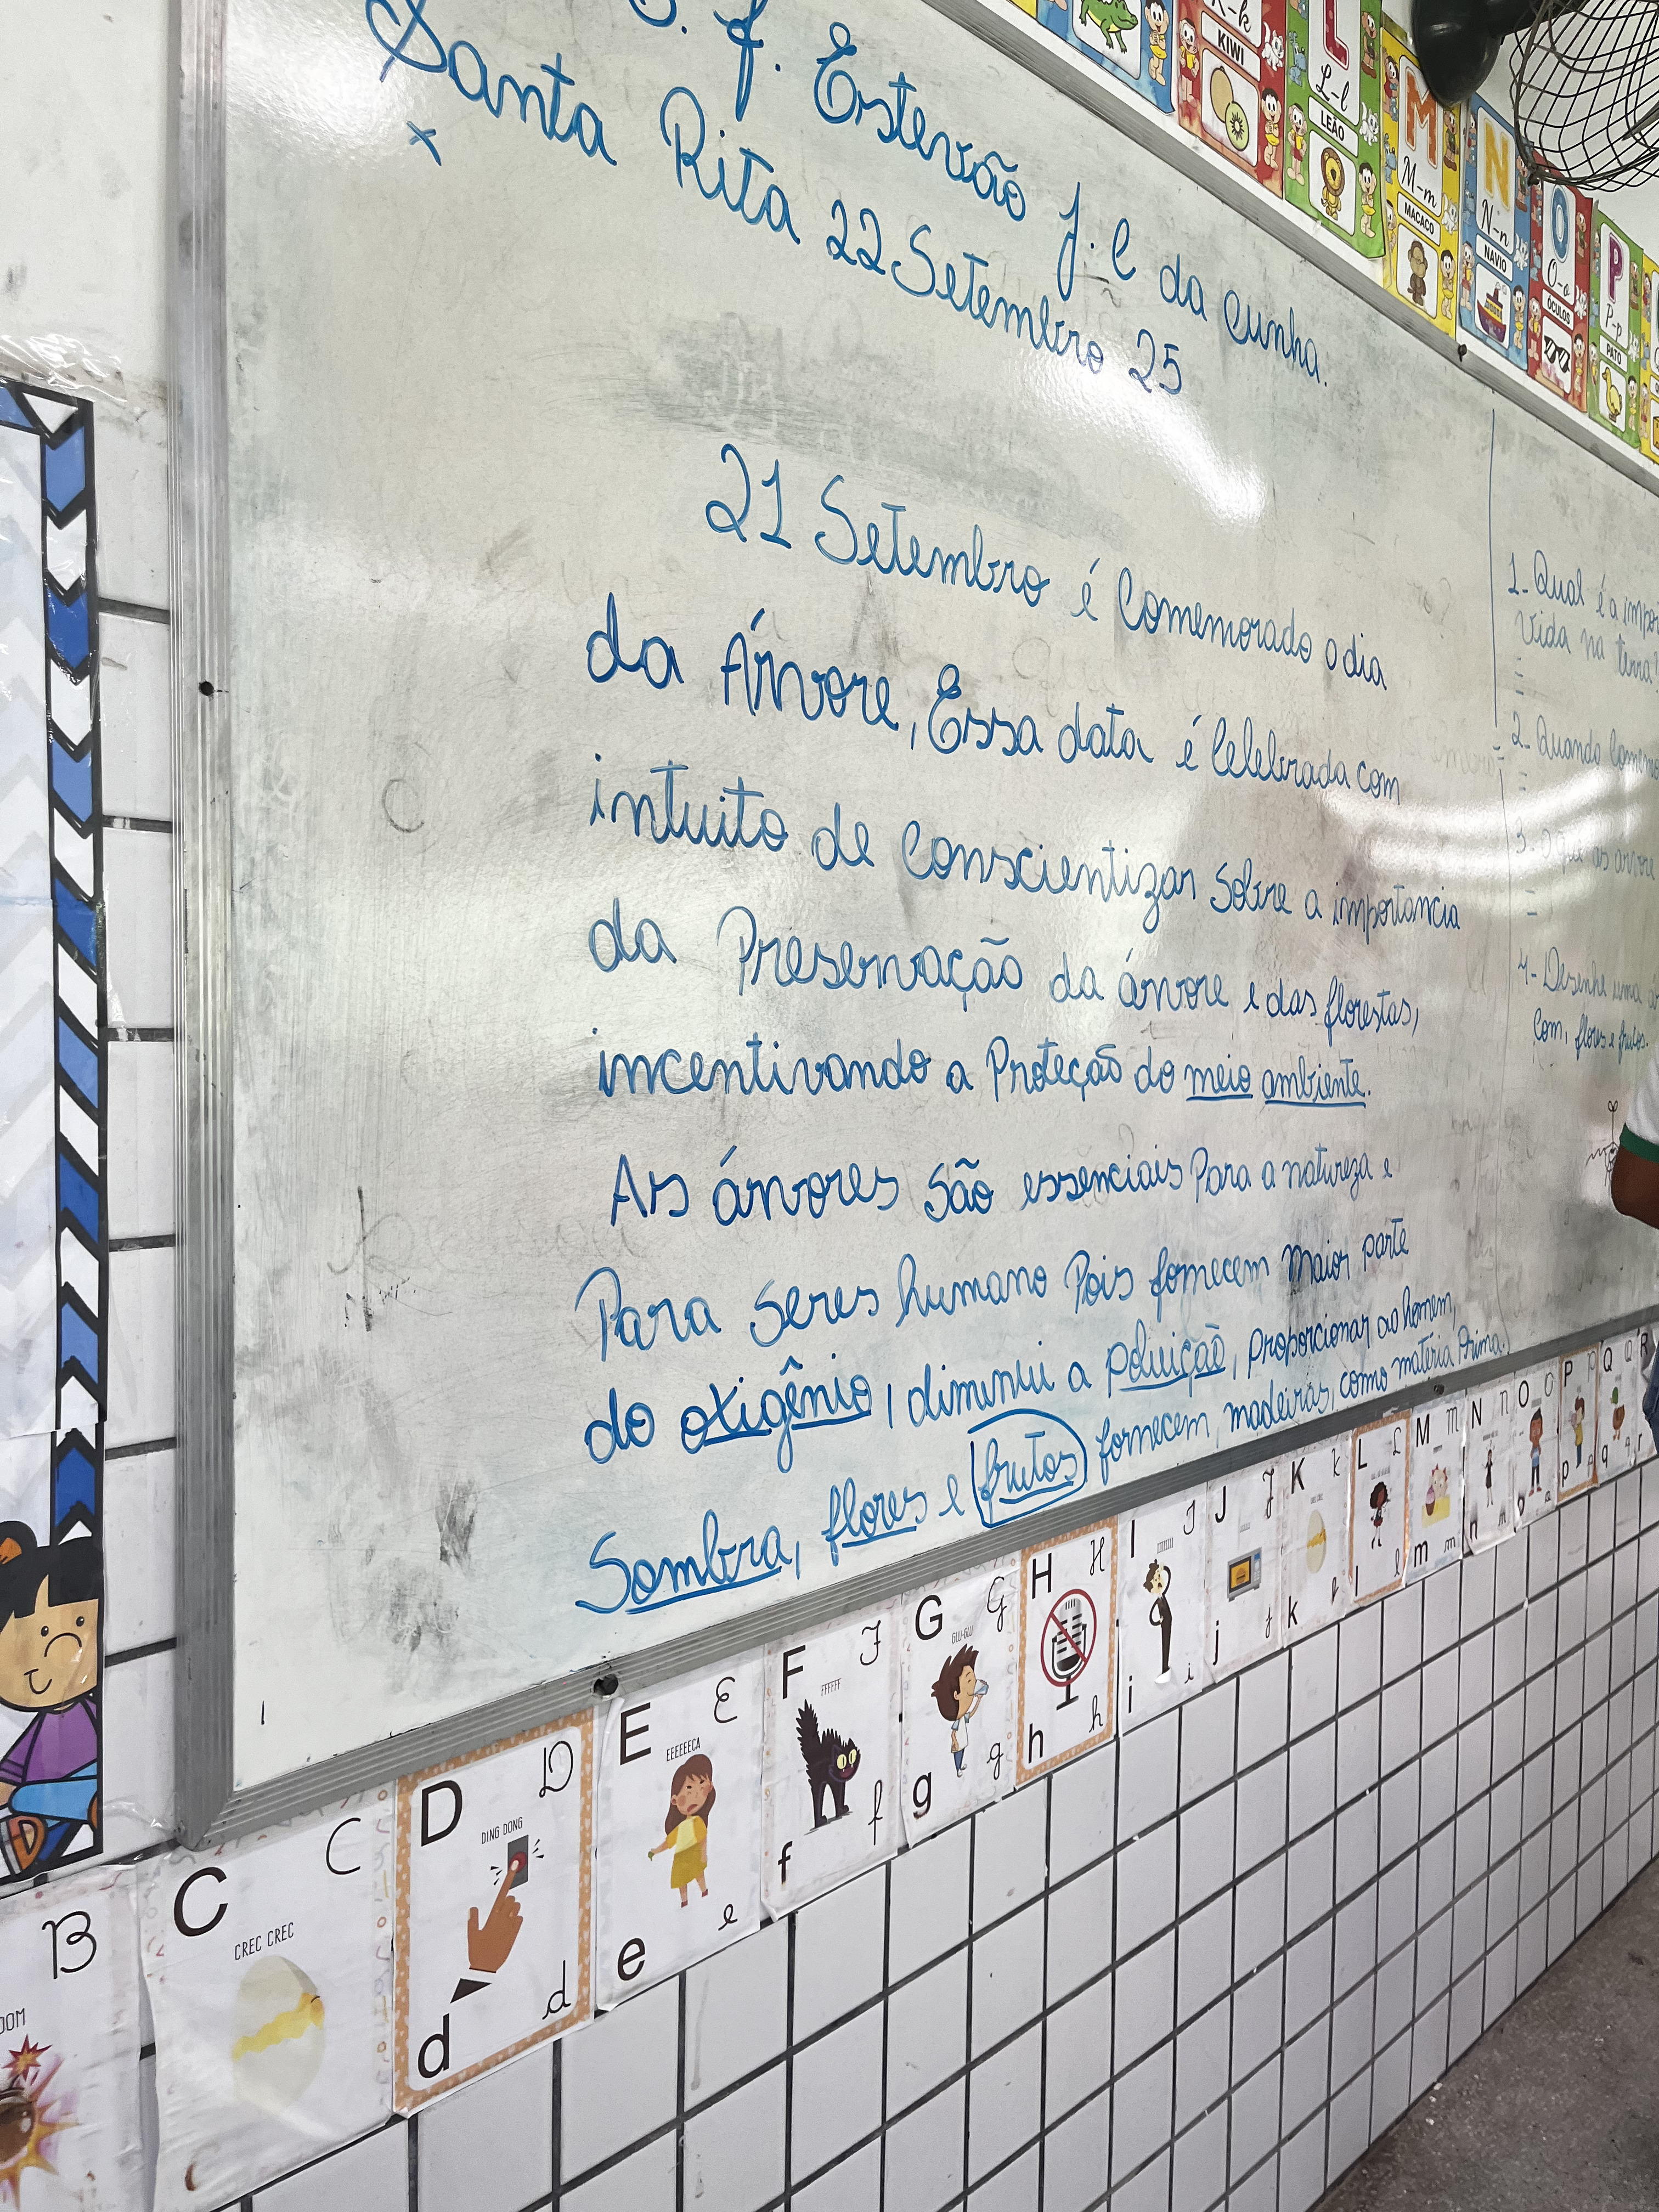 J. Estevão J. C da Cunha.
Santa Rita 22 Setembro 25
21 Setembro é Comemorado o dia
da Árvore, Essa data é Celebrada com
intuito de Conscientizar Sobre a importancia
da Preservação da árvore e das florestas,
incentivando a Proteção do meio ambiente.
As árvores São essenciais Para a natureza e
Para Seres humano Pois fornecem Maior parte
do oxigênio, diminui a poluição, proporcionar ao homem,
Sombra, flores e frutos fornecem, madeiras, como matéria Prima.
1- Qual é a impor
Vida na terra?
=
2- Quando Comemo
=
3- O que as árvore
=
4- Desenhe uma
Com, flores e frutos.
K-k
KIWI
L
L-l
LEÃO
M
M-m
MACACO
N
N-n
NAVIO
O
O-o
ÓCULOS
P
P-p
PATO
B
OOM
C C
CREC CREC
D D
DING DONG
d d
E E
EEEEEECA
e e
F F
FFFFFF
f f
G G
GLU-GLU
g g
H H
h h
I I
i i
J J
j j
K K
k k
L L
l l
M M
m m
N n
n
O O
P P
p p
Q Q
q q
R
r